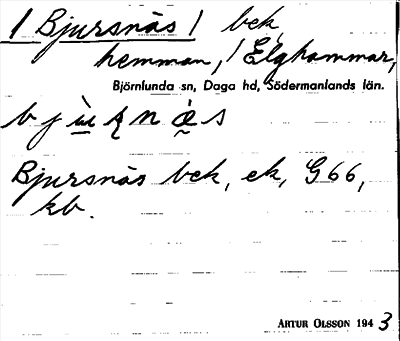 / Bjursnäs / bek,
hemman, / Elghammar,
Björnlunda sn, Daga hd, Södermanlands län.
Bjursnäs bek, ek, G66,
kb.
ARTUR OLSSON 1943